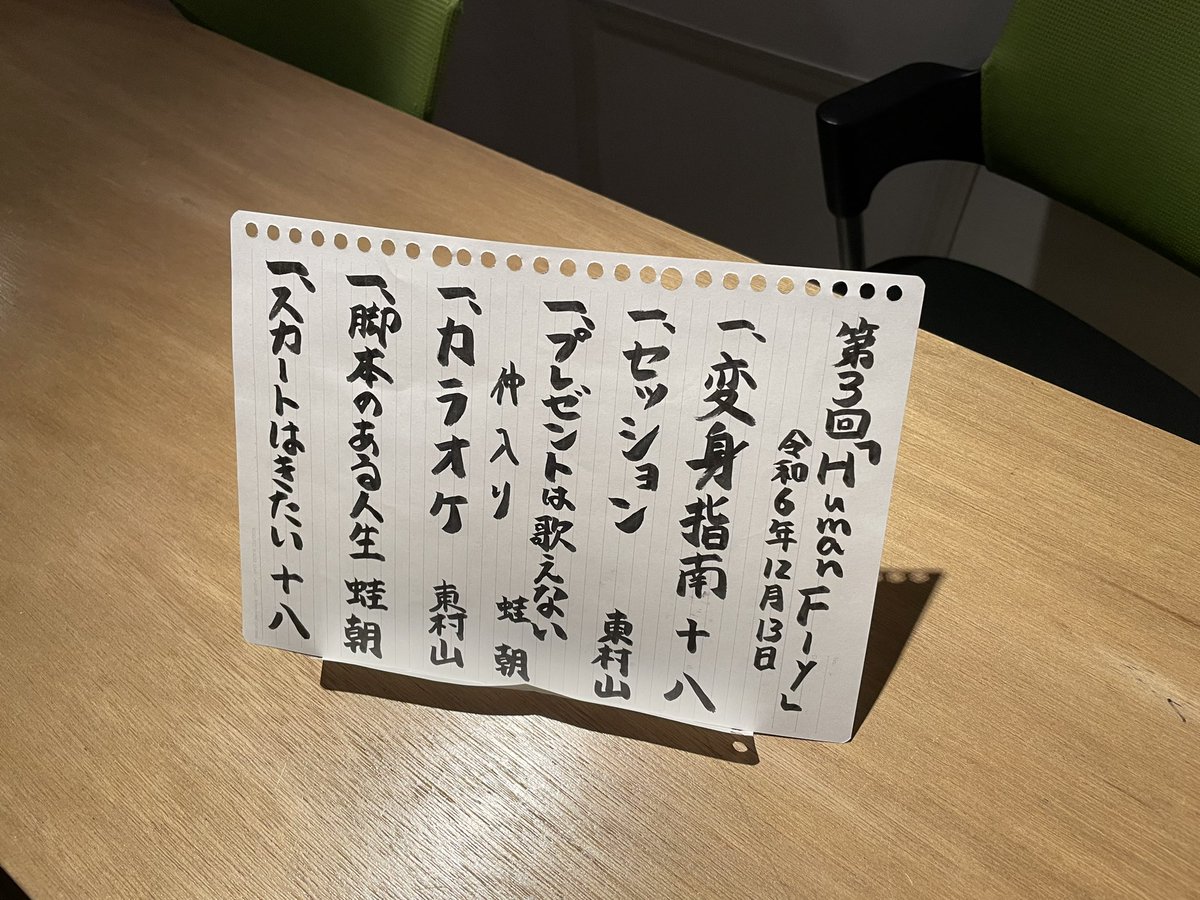 第3回「Human Fly」
令和6年12月13日
一、変身指南 十八
一、セッション 東村山
一、プレゼントは歌えない 蛙朝
仲入り
一、カラオケ 東村山
一、脚本のある人生 蛙朝
一、スカートはきたい 十八